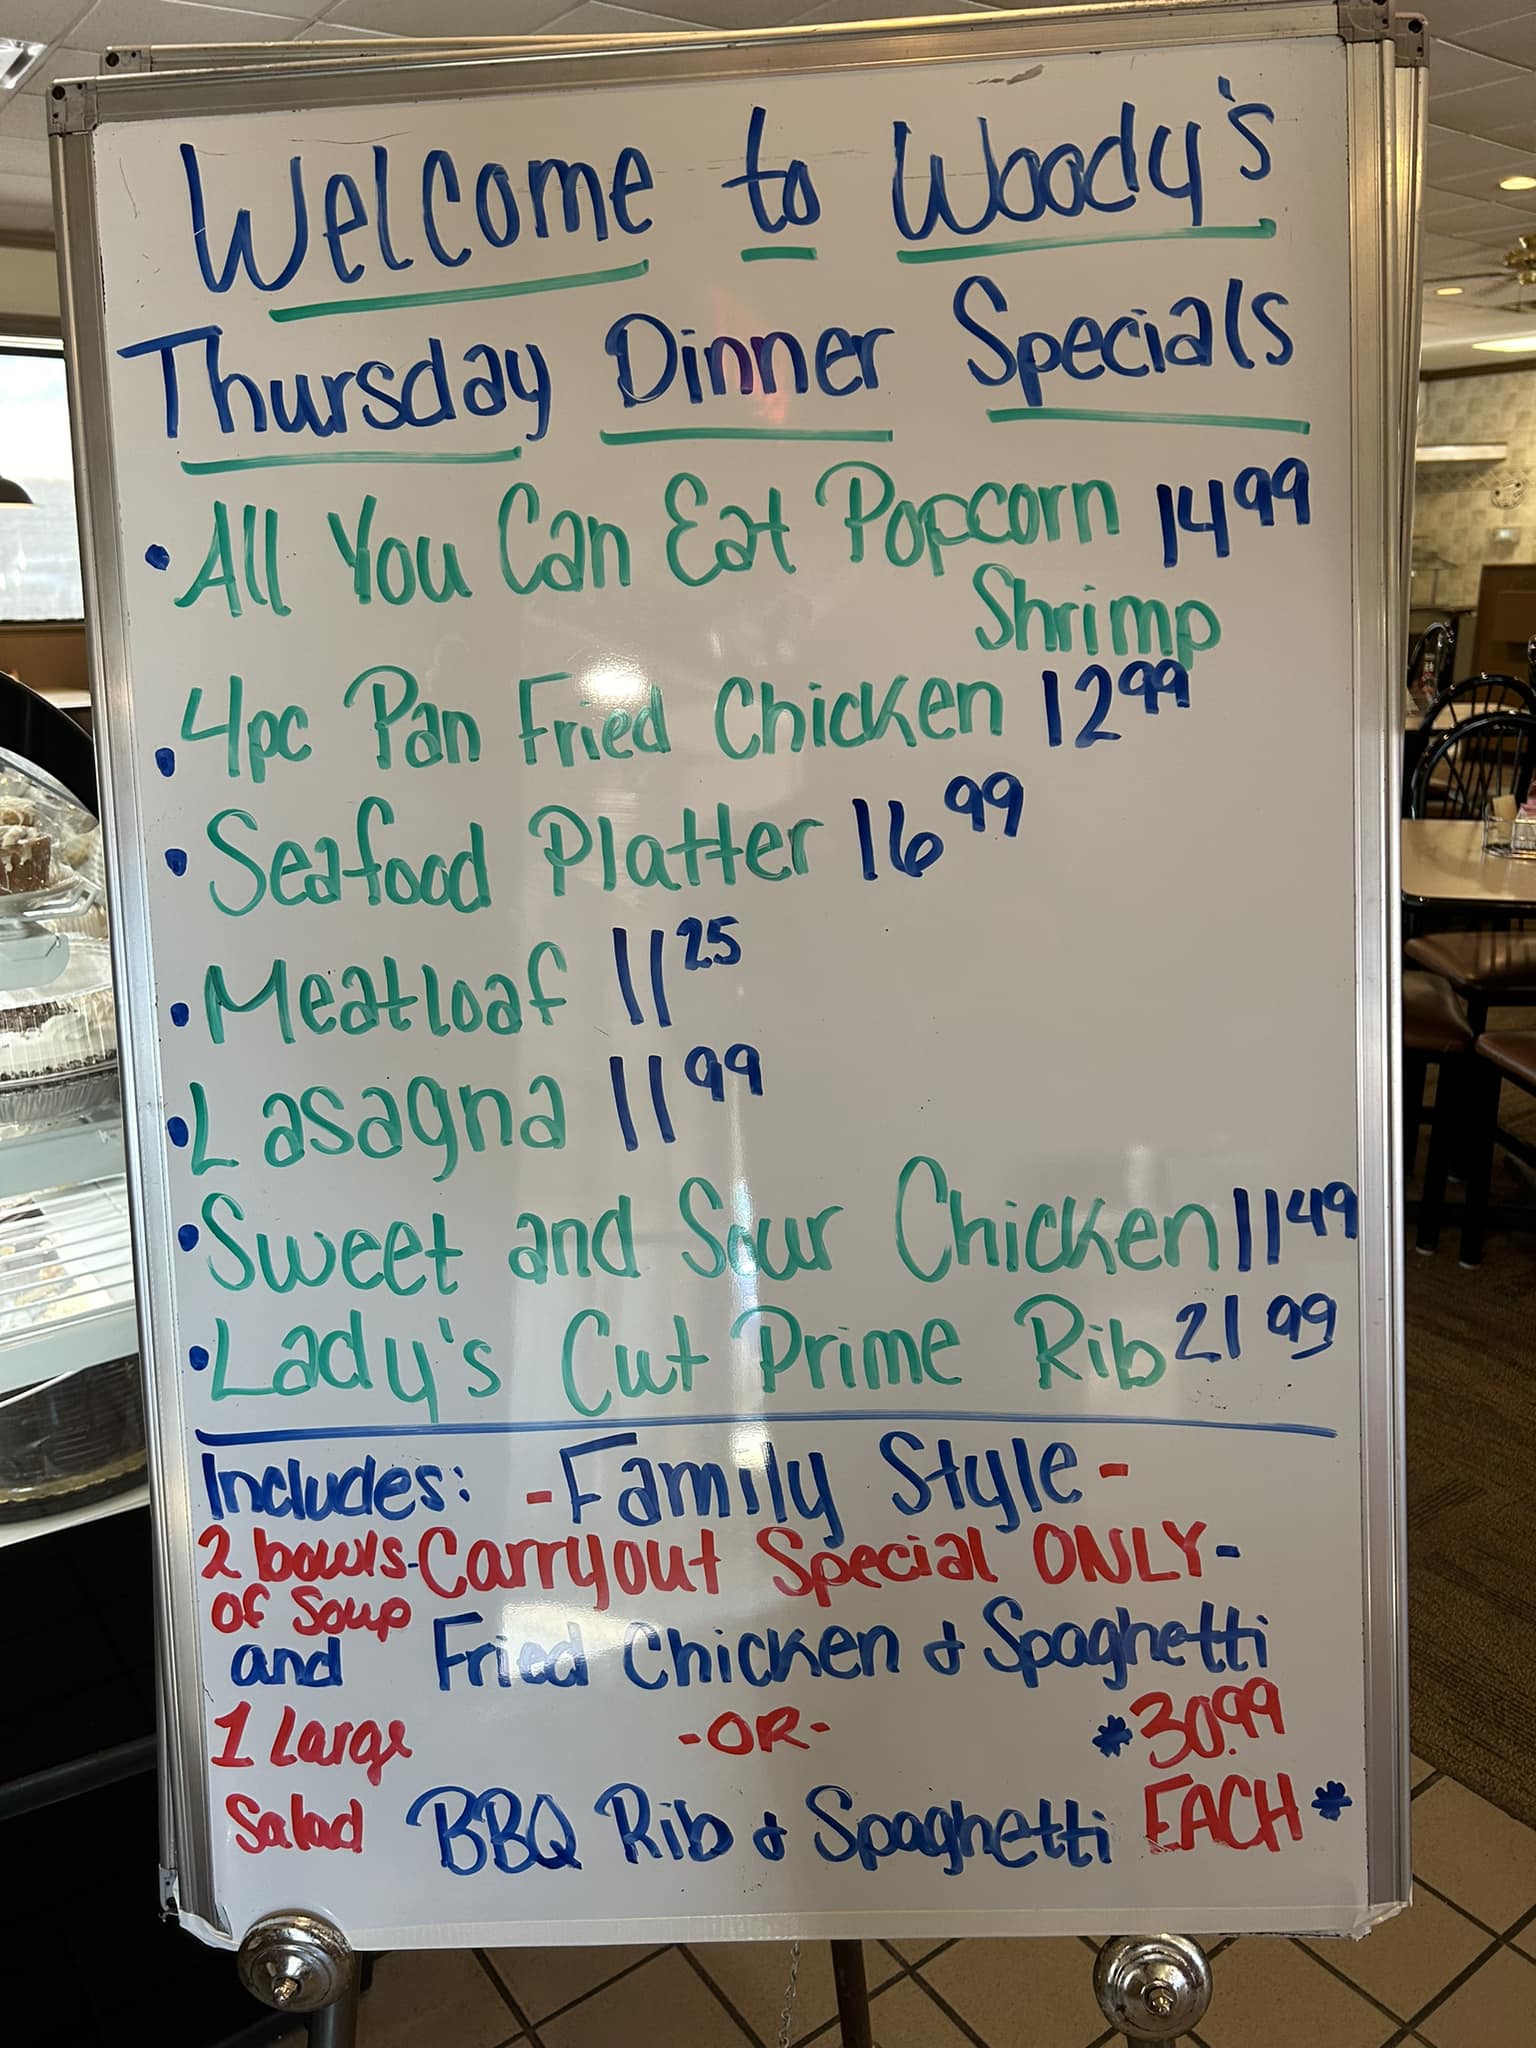 Welcome to Woody's
Thursday Dinner Specials
• All You Can Eat Popcorn 14.99
Shrimp
• 4pc Pan Fried Chicken 12.99
• Seafood Platter 16.99
• Meatloaf 11.25
• Lasagna 11.99
• Sweet and Sour Chicken 11.49
• Lady's Cut Prime Rib 21.99
Includes: -Family Style-
2 bowls -Carryout Special ONLY-
of Soup
and Fried Chicken & Spaghetti
1 Large -OR- *30.99
Salad BBQ Rib & Spaghetti EACH*